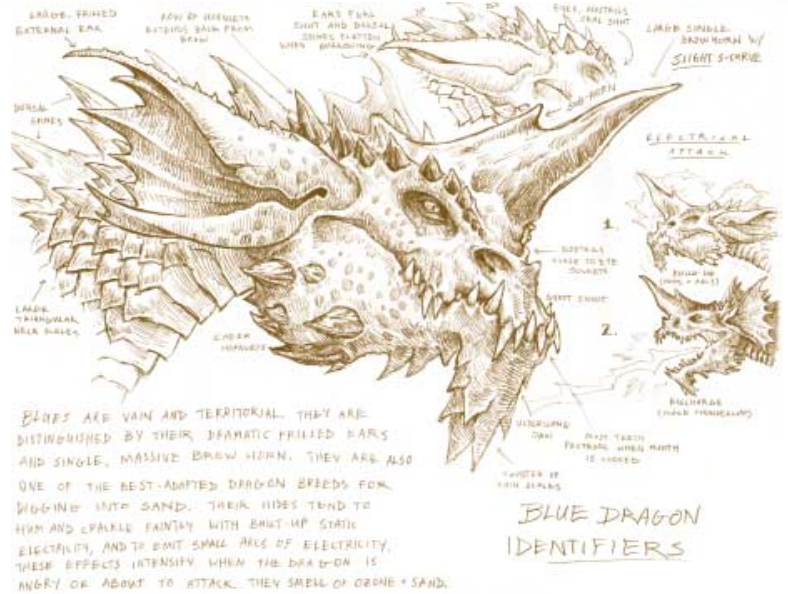 LARGE, FRILLED
EXTERNAL EAR
ROW OF HORNLETS
EXTENDS BACK FROM
BROW
EARS FURL
SHUT AND DORSAL
SPINES FLATTEN
WHEN BURROWING
EYES, NOSTRILS
SEAL SHUT
LARGE SINGLE
BROWHORN W/
SLIGHT S-CURVE
SUB-HORN
DORSAL
SPINES
ELECTRICAL
ATTACK
1.
BUILD-UP
(HUMS + ARCS)
2.
DISCHARGE
(LOUD THUNDERCLAP)
NOSTRILS
CLOSE TO EYE
SOCKETS
SHORT SNOUT
LARGE
TRIANGULAR
NECK SCALES
CHEEK
HORNLETS
UNDERSLUNG
JAW
MOST TEETH
PROTRUDE WHEN MOUTH
IS CLOSED
CLUSTER OF
CHIN SCALES
BLUES ARE VAIN AND TERRITORIAL. THEY ARE
DISTINGUISHED BY THEIR DRAMATIC FRILLED EARS
AND SINGLE, MASSIVE BROW HORN. THEY ARE ALSO
ONE OF THE BEST-ADAPTED DRAGON BREEDS FOR
DIGGING INTO SAND. THEIR HIDES TEND TO
HUM AND CRACKLE FAINTLY WITH BUILT-UP STATIC
ELECTRICITY, AND TO EMIT SMALL ARCS OF ELECTRICITY.
THESE EFFECTS INTENSIFY WHEN THE DRAGON IS
ANGRY OR ABOUT TO ATTACK. THEY SMELL OF OZONE + SAND.
BLUE DRAGON
IDENTIFIERS